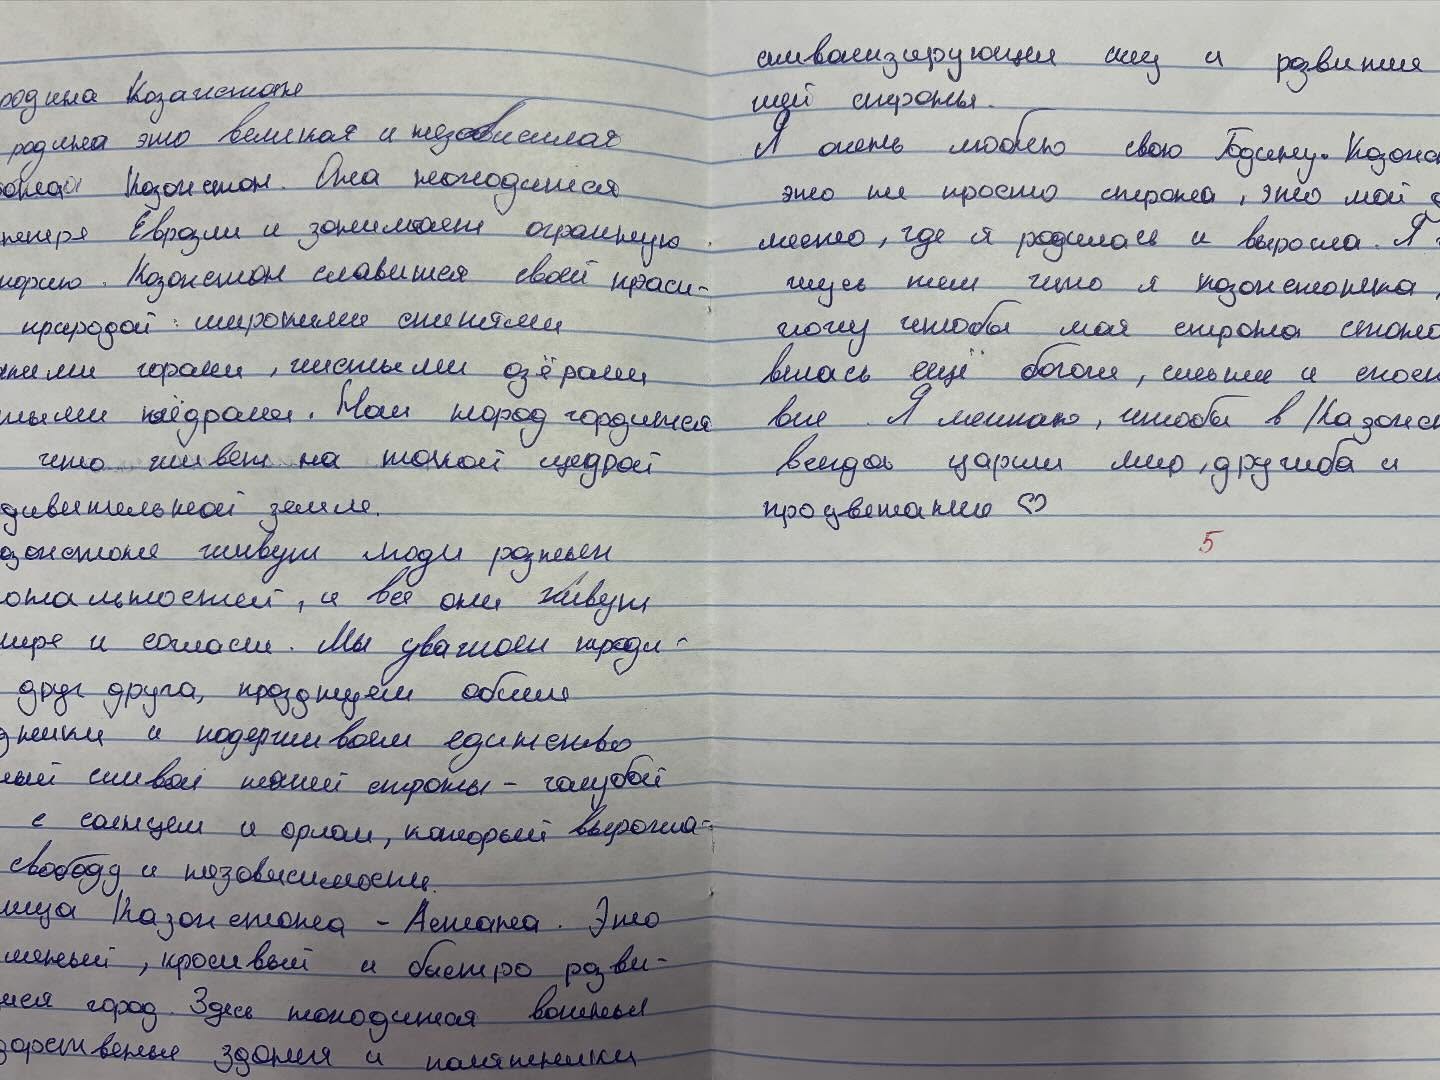 родина Казахстан
родина это великая и независимая
Казахстан. Она находится
центре Евразии и занимает огромную
Казахстан славится своей краси-
природой: широкими степями
горами, чистыми озёрами
недрами. Наш народ гордится
что живет на такой щедрой
дивительной земле.
азахстане живут люди разных
ональностей, и все они живут
мире и согласи. Мы уважаем
друг друга, празднуем общие
дники и подерживаем единство
ный символ нашей страны - голубой
с солнцем и орлом, который выража-
свободу и независимость.
лица Казахстана - Астана. Это
менный, красивый и быстро разви-
ийся город. Здесь находится важные
дарственые здания и памятники
симвализирующие силу и развития
шей страны.
Я очень люблю свою Родину. Казахс
это не просто страна, это мой д
место, где я родилась и выросла. Я
жусь тем что я казахстанка,
хочу чтобы моя страна стано
вилась ещё богаче, сильнее и
вие. Я мечтаю, чтобы в Казахс
всегда царили мир, дружба и
продветание ♡
5